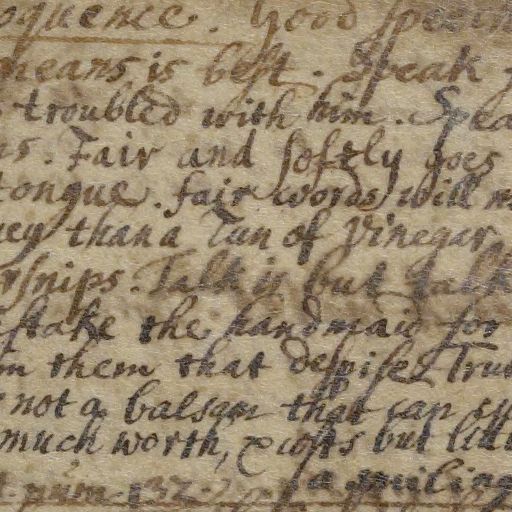 oquence. Good speec
means is best. Speak
troubled with him. Spea
ns. Fair and softly goes
tongue. fair words will n
ney than a Tun of Vinegar
rsnips. Talk is but talk
istake the handmaid for
m them that despise Tru
not a balsam that can cu
much worth, & costs but litt
num. 132. a smiling